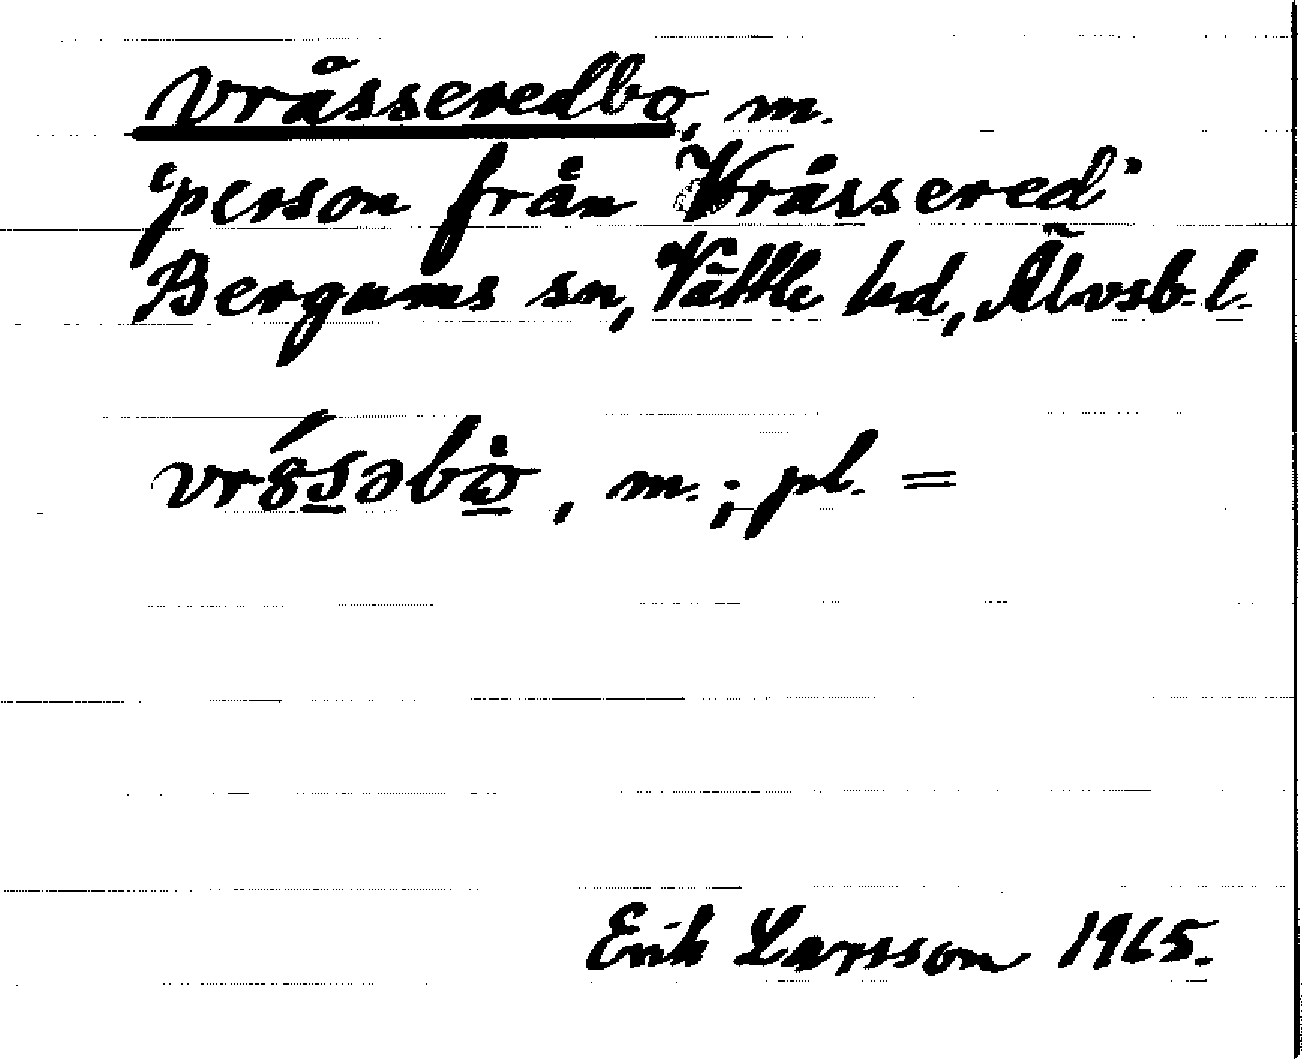 vråsseredbo, m.
'person från Vråssered'
Bergums sn, Vättle hd, Älvsb. l.
vr8́s̲əbo̲̊, m.; pl. =
Erik Larsson 1965.